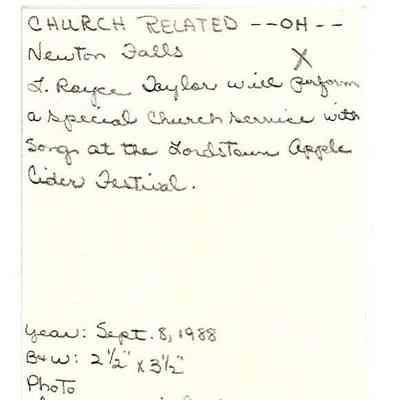 CHURCH RELATED -- OH --
Newton Falls X
L. Royce Taylor will perform
a special church service with
songs at the Lordstown Apple
Cider Festival.
Year: Sept. 8, 1988
B+W: 2 1/2" x 3 1/2"
Photo